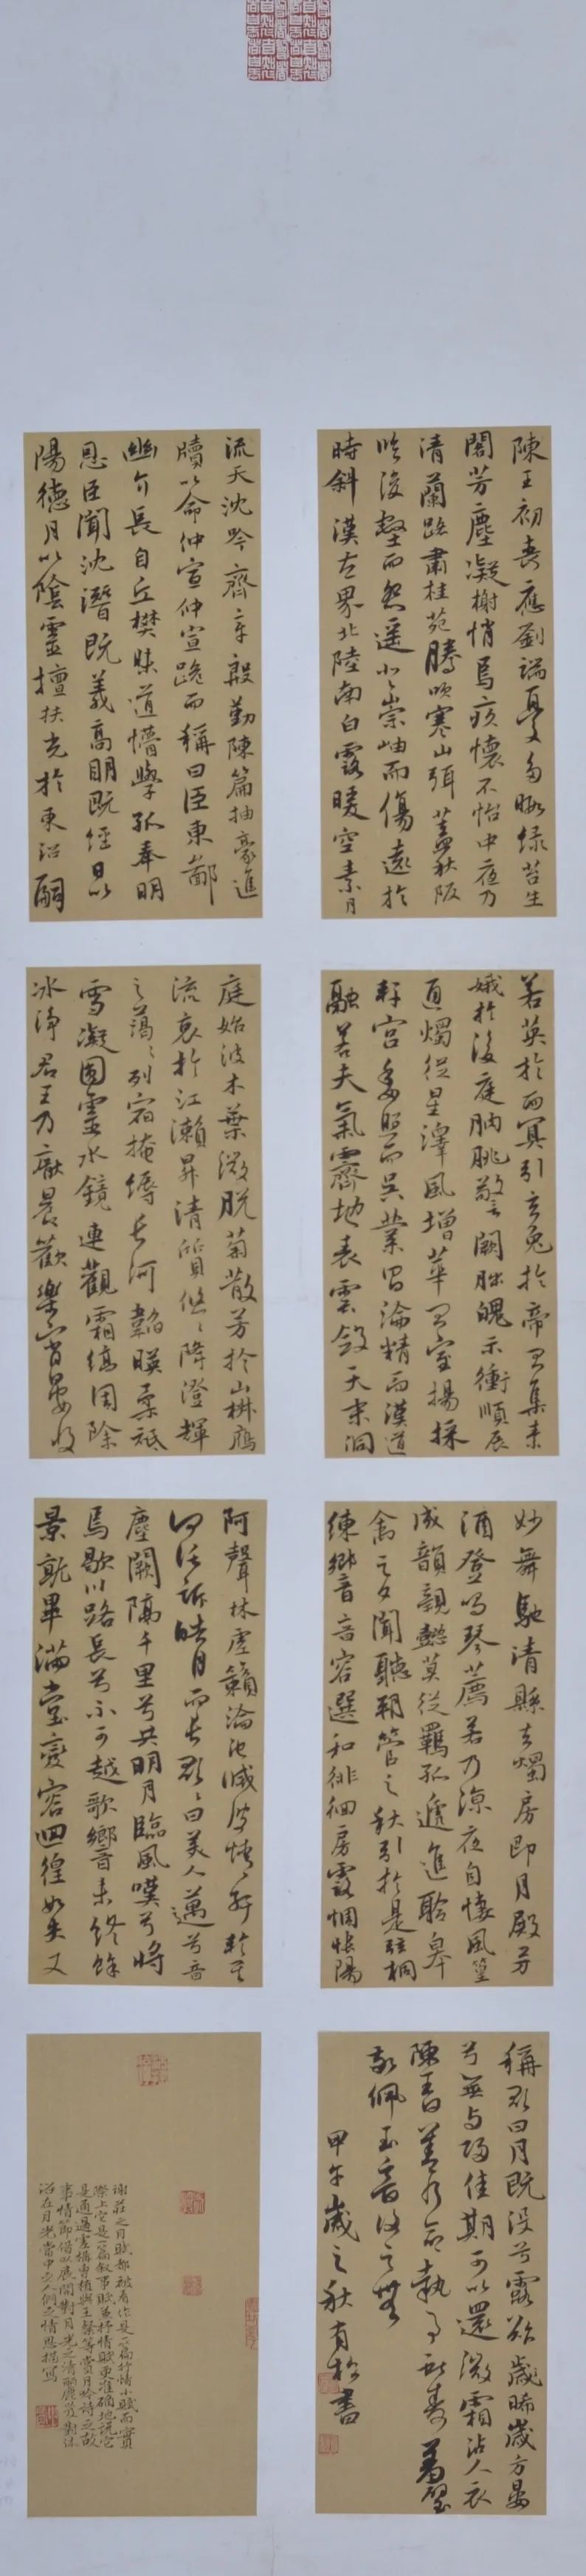 陳王初喪應劉端憂多暇綠苔生
閣芳塵凝榭悄焉疚懷不怡中夜乃
清蘭路肅桂苑騰吹寒山弭蓋秋阪
臨浚壑而怨遥登崇岫而傷遠於
時斜漢左界北陸南白露曖空素月
流天沈吟齊章殷勤陳篇抽毫進
牘以命仲宣仲宣跪而稱曰臣東鄙
幽介長自丘樊昧道懵學孤奉明
恩臣聞沈潛既義高明既經日以
陽德月以陰靈擅扶光於東沼嗣
若英於西冥引玄兔於帝臺集素
娥於後庭朒朓警闕朏魄示衝順辰
通燭從星澤風增華臺室揚採
軒宮委照而吳業昌淪精而漢道
融若夫氣霽地表雲斂天末洞
庭始波木葉微脫菊散芳於山椒雁
流哀於江瀨昇清質悠悠降澄輝
之藹藹列宿掩縟長河韜映柔祇
雪凝圓靈水鏡連觀霜縞周除
冰淨君王乃厭晨歡樂宵宴收
妙舞馳清縣去燭房即月殿芳
酒登鳴琴薦若乃涼夜自悽風篁
成韻親懿莫從羈孤遞進聆皋
禽之夕聞聽朔管之秋引於是絃桐
練鄉音音容選和徘徊房露惆悵陽
阿聲林虛籟淪池滅波情紆軫其
何託訴皓月而長歌歌曰美人邁兮音
塵闕隔千里兮共明月臨風嘆兮將
焉歇川路長兮不可越歌鄉音未終餘
景就畢滿堂變容迴徨如失又
稱歌曰月既沒兮露欲晞歲方晏
兮無與歸佳期可以還微霜沾人衣
陳王曰善乃命執事獻壽羞璧
敬佩玉音復之無
甲午歲之秋 書
謝莊之月賦都被看作是一篇抒情小賦而實
際上它是一篇敘事賦並抒情賦更準確地說它
是通過虛構曹植與王粲等賞月吟詩之故
事情節借以展開對月光之清麗
沼在月光當中之人們之情思描寫